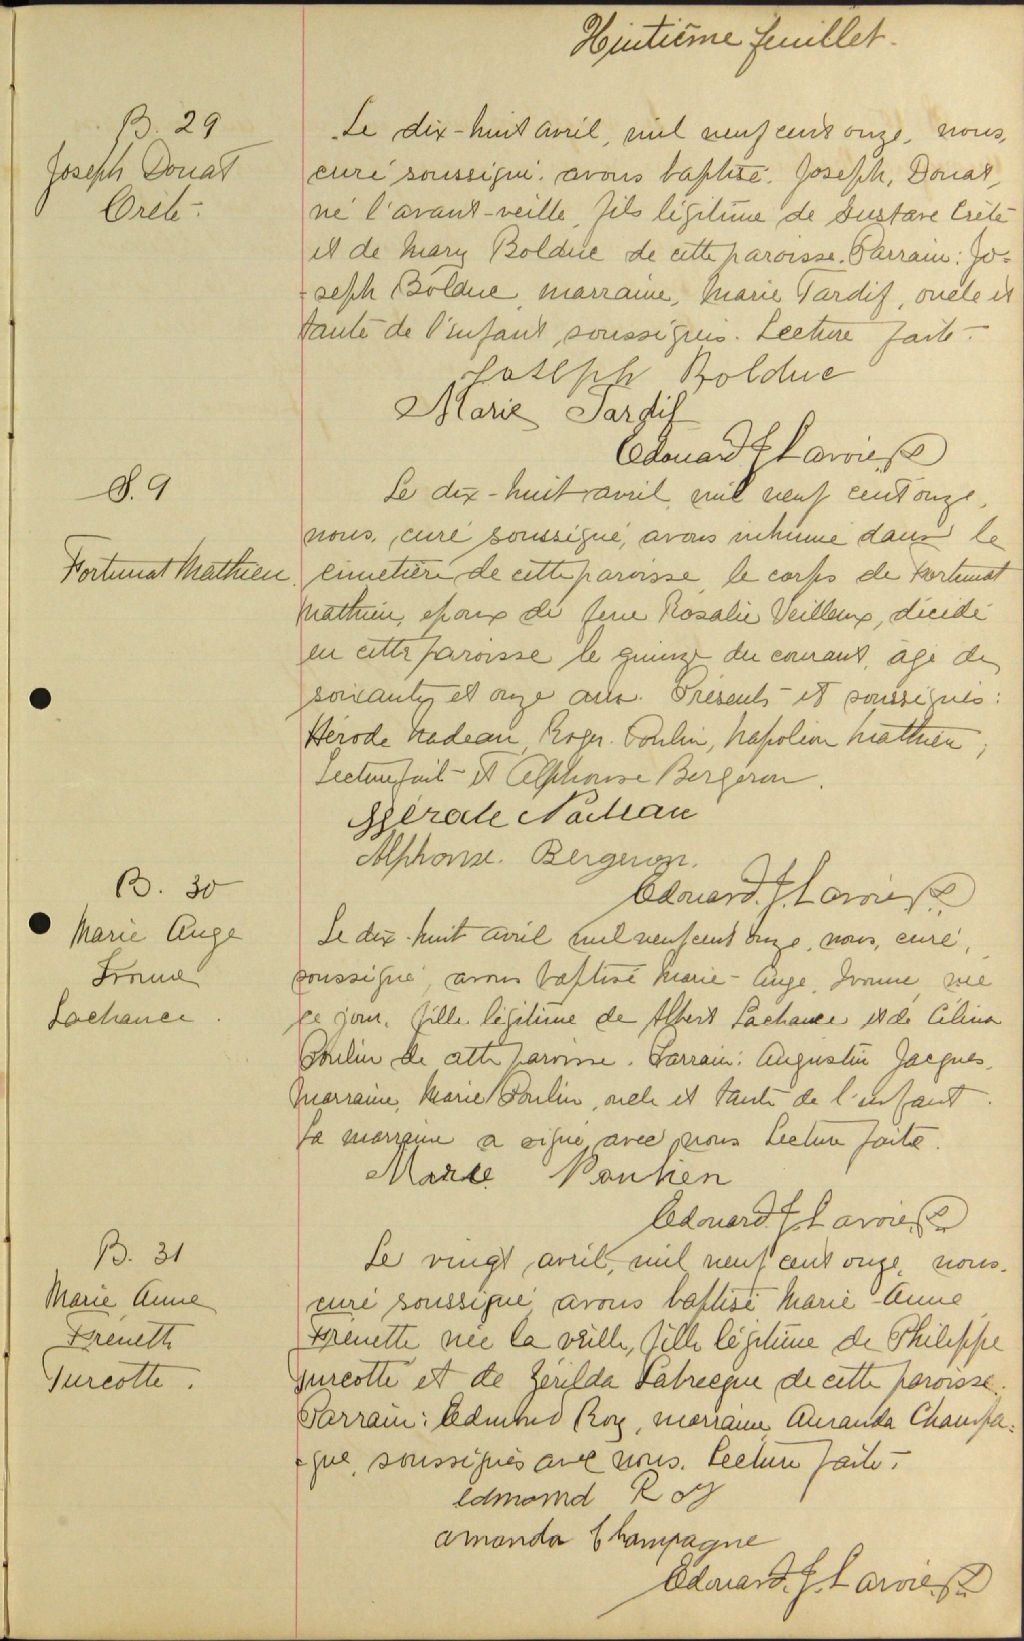 Huitième feuillet.
B. 29
Joseph Donat
Crête.
Le dix-huit avril, mil neuf cent onze, nous,
curé soussigné, avons baptisé, Joseph, Donat,
né l'avant-veille, fils légitime de Gustave Crête
et de Mary Bolduc de cette paroisse. Parrain: Jo-
-seph Bolduc, marraine, Marie Tardif, oncle et
tante de l'enfant, soussignés. Lecture faite.
Joseph Bolduc
Marie Tardif
Edouard J. Lavoie, P
S. 9
Fortunat Mathieu.
Le dix-huit avril, mil neuf cent onze,
nous, curé soussigné, avons inhumé dans le
cimetière de cette paroisse, le corps de Fortunat
Mathieu, époux de feue Rosalie Veilleux, décédé
en cette paroisse le quinze du courant, âgé de
soixante et onze ans. Présents et soussignés:
Hérode Nadeau, Roger Poulin, Napoléon Mathieu,
Lecture faite et Alphonse Bergeron.
Hérode Nadeau
Alphonse. Bergeron.
Edouard. J. Lavoie, P
B. 30
Marie Ange
Ivonne
Lachance.
Le dix-huit avril mil neuf cent onze, nous, curé,
soussigné, avons baptisé Marie-Ange, Ivonne, née
ce jour, fille légitime de Albert Lachance et de Célina
Poulin de cette paroisse. Parrain: Augustin Jacques,
marraine, Marie Poulin, oncle et tante de l'enfant.
La marraine a signé avec nous Lecture faite.
Marie Poulien
Edouard. J. Lavoie, P
B. 31
Marie Anne
Frénette
Turcotte.
Le vingt avril, mil neuf cent onze, nous,
curé soussigné, avons baptisé Marie-Anne,
Frénette née la veille, fille légitime de Philippe
Turcotte et de Zérilda Labrecque de cette paroisse.
Parrain: Edmond Roy, marraine, Amanda Champa-
-gne, soussignés avec nous. Lecture faite.
edmond Roy
amanda Champagne
Edouard. J. Lavoie, P